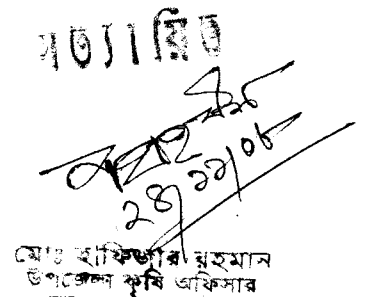 সত্যায়িত
২৪/১১/০৮
মোঃ হাফিজার রহমান
উপজেলা কৃষি অফিসার